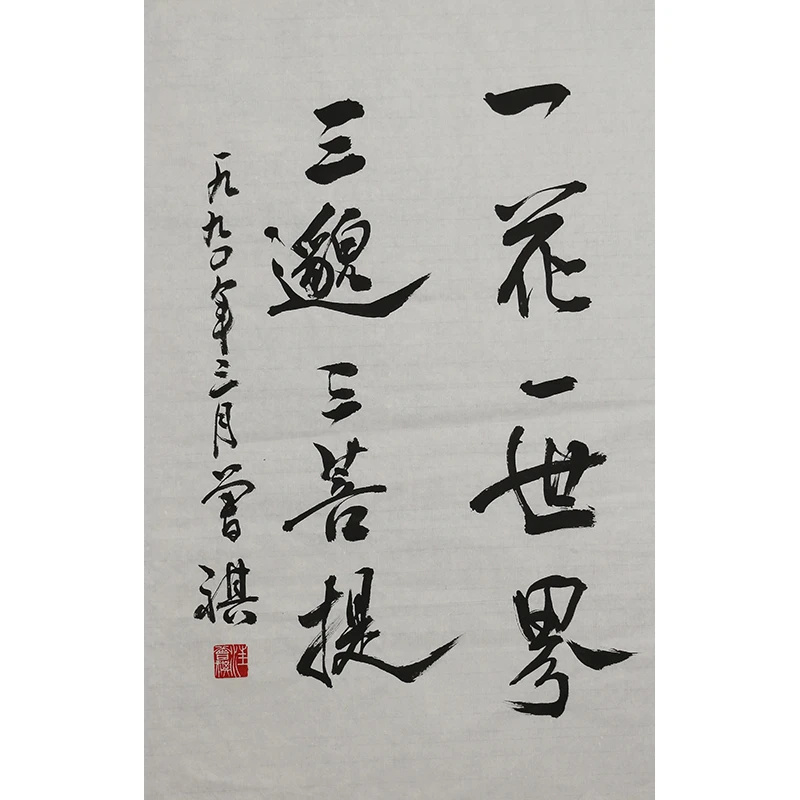 一花一世界
三邈三菩提
一九九〇年三月曾祺
汪曾祺